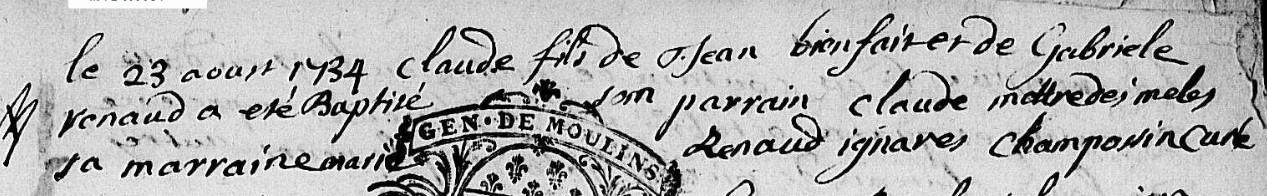 le 23 aoust 1734 claude fils de Jean bienfait et de Gabriele
renaud a eté Baptisé son parrain claude
sa marraine marie Renaud ignares Champossin Curé
GEN · DE MOULINS